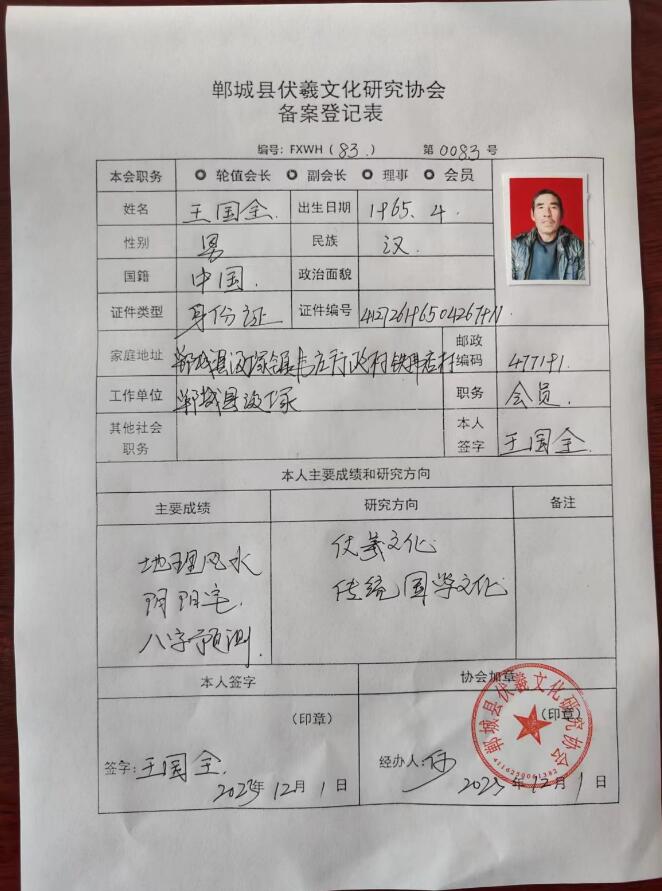 郸城县伏羲文化研究协会
备案登记表
编号: FXWH ( 83. ) 第 0083 号
本会职务 轮值会长 副会长 理事 会员
姓名 王国全. 出生日期 1965. 4.
性别 男 民族 汉.
国籍 中国. 政治面貌
证件类型 身份证 证件编号
家庭地址 郸城县汲塚镇 行政村 邮政编码 477191.
工作单位 郸城县汲塚 职务 会员.
其他社会职务 本人签字 王国全.
本人主要成绩和研究方向
主要成绩 研究方向 备注
地理风水 伏羲文化
阴阳宅. 传统国学文化
八字预测.
本人签字 协会加章
(印章) (印章)
郸城县伏羲文化研究协会
签字: 王国全. 经办人:
2023年12月1日 2023年12月1日